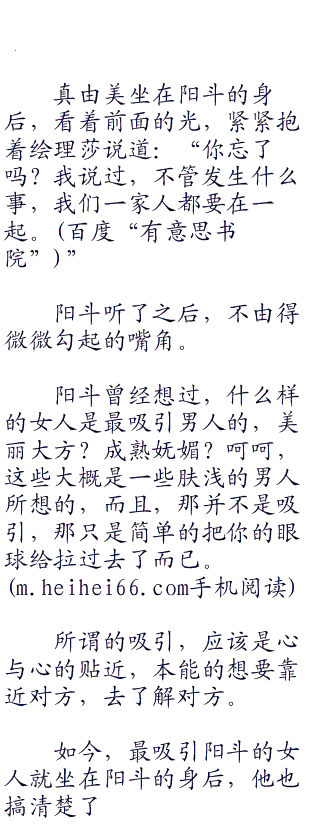 真由美坐在阳斗的身
后，看着前面的光，紧紧抱
着绘理莎说道：“你忘了
吗？我说过，不管发生什么
事，我们一家人都要在一
起。(百度“有意思书
院”)”
阳斗听了之后，不由得
微微勾起的嘴角。
阳斗曾经想过，什么样
的女人是最吸引男人的，美
丽大方？成熟妩媚？呵呵，
这些大概是一些肤浅的男人
所想的，而且，那并不是吸
引，那只是简单的把你的眼
球给拉过去了而已。
(m.heihei66.com手机阅读)
所谓的吸引，应该是心
与心的贴近，本能的想要靠
近对方，去了解对方。
如今，最吸引阳斗的女
人就坐在阳斗的身后，他也
搞清楚了